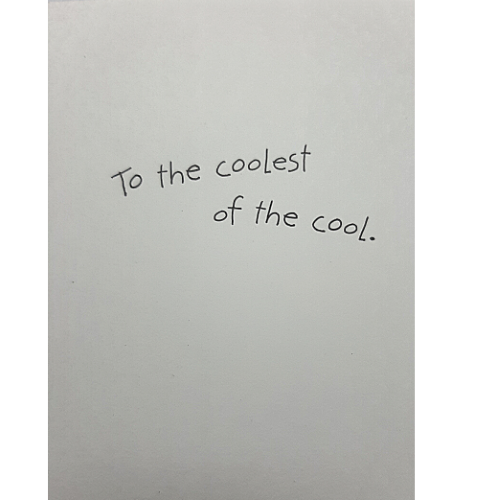 To the coolest
of the cool.